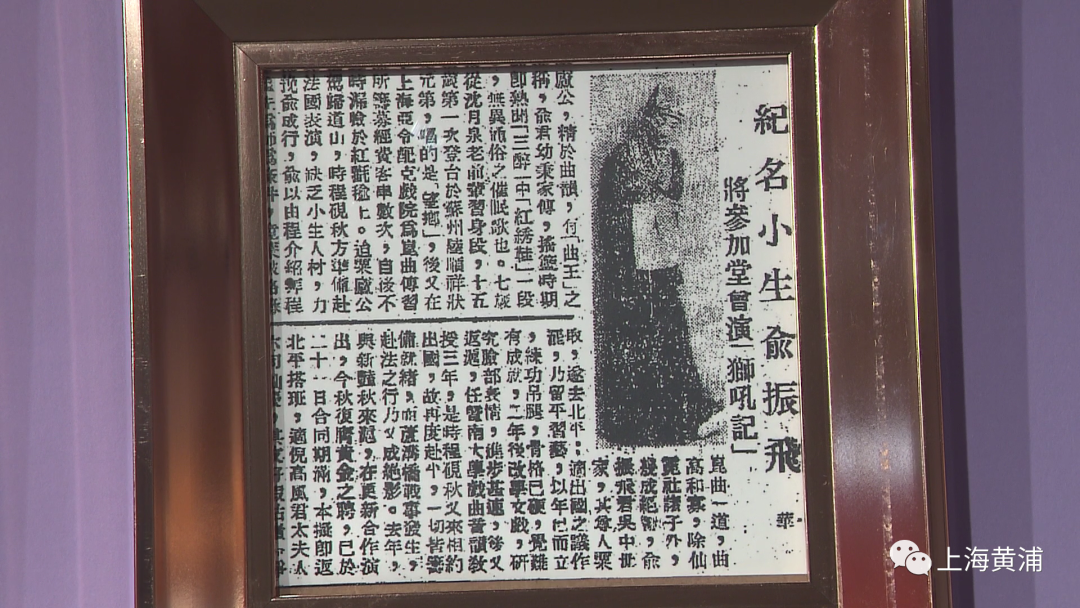 紀名小生俞振飛
將參加堂曾演「獅吼記」
華
崑曲一道,曲
高和寡,除仙
霓社諸子外,
幾成絕響,俞
振飛君吳中世
家,其尊人粟
廬公,精於曲韻,有「曲王」之
稱,俞君幼秉家傳,搖籃時期
即熟聞「三醉」中「紅綉鞋」一段
,無異通俗之催眠歌也。七歲
從沈月泉老前輩習身段,十五
歲第一次登台於蘇州陸順祥狀
元第,唱的是「望鄉」,後又在
上海亞令配克戲院爲崑曲傳習
所籌募經費客串數次,自後不
時漏臉於紅氍毹上。迨粟廬公
駕歸道山,時程硯秋方準備赴
法國表演,缺乏小生人材,力
挽俞成行,俞以由程介紹拜程
取,遂去北平:適出國之議作
罷,乃留平習藝,以年已而立
,練功吊腿,骨格已硬,覺難
有成就,二年後改學文戲,研
究臉部表情,進步甚速,後又
返滬,任暨南大學戲曲音韻教
授三年,是時程硯秋又來相約
出國,故再度赴平,一切皆籌
備就緒,而蘆溝橋戰事發生,
赴法之行乃又成絕影。去年,
與新豔秋來滬,在更新合作演
出,今秋復膺黃金之聘,已於
二十一日合同期滿,本擬即返
北平搭班,適倪高風君太夫人
上海黄浦